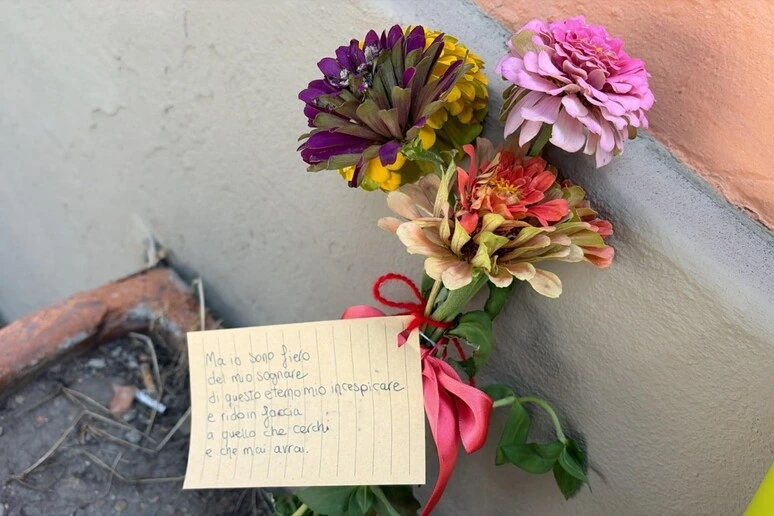 Ma io sono fiero
del mio sognare
di questo eterno mio incespicare
e rido in faccia
a quello che cerchi
e che mai avrai.